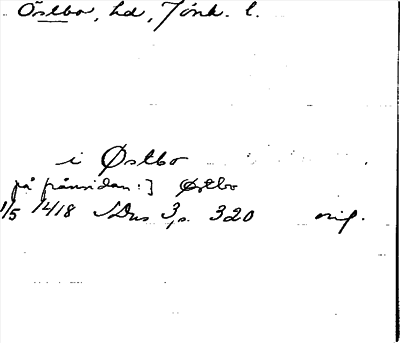 Östbo, hd, Jönk. l.
i Østbo
på frånsidan:] Østbo
1/5 1418 SDns 3, s. 320 orig.